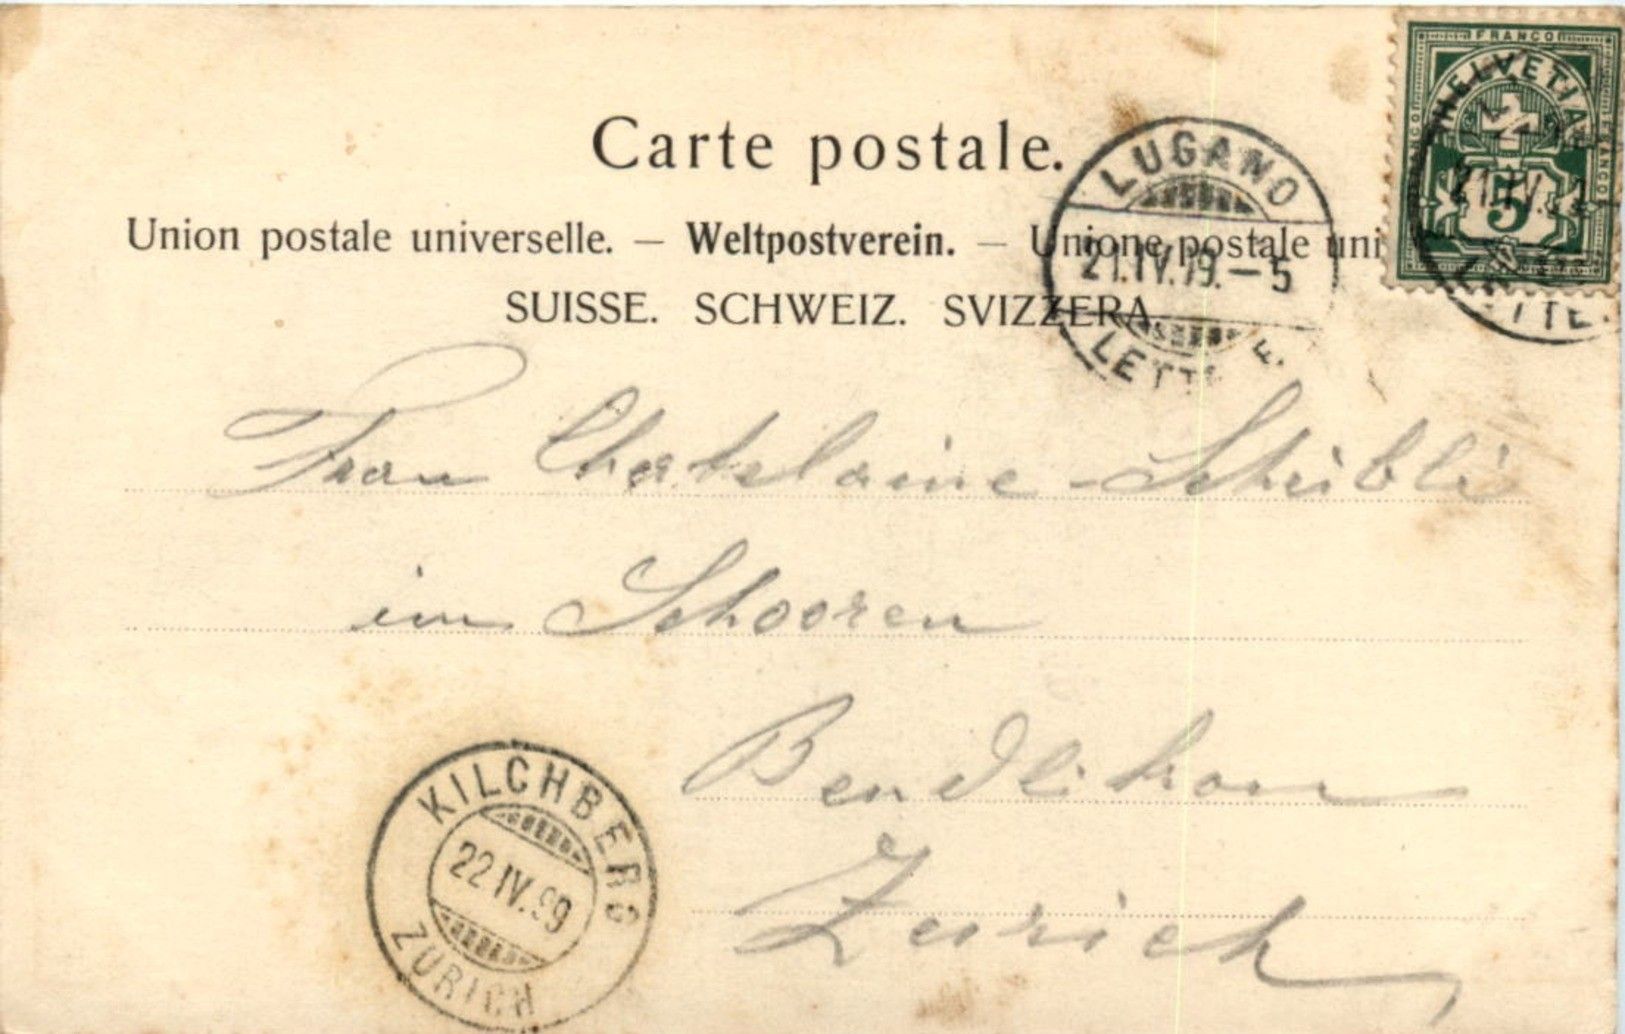 FRANCO
HELVETIA
5
Carte postale.
LUGANO
21.IV.99.–5
LETT
Union postale universelle. – Weltpostverein. – Unione postale uni
SUISSE. SCHWEIZ. SVIZZERA
Frau Chatelaine-Scheibli
im Schooren
Bendlikon
Zürich
KILCHBERG
22 IV.99
ZÜRICH